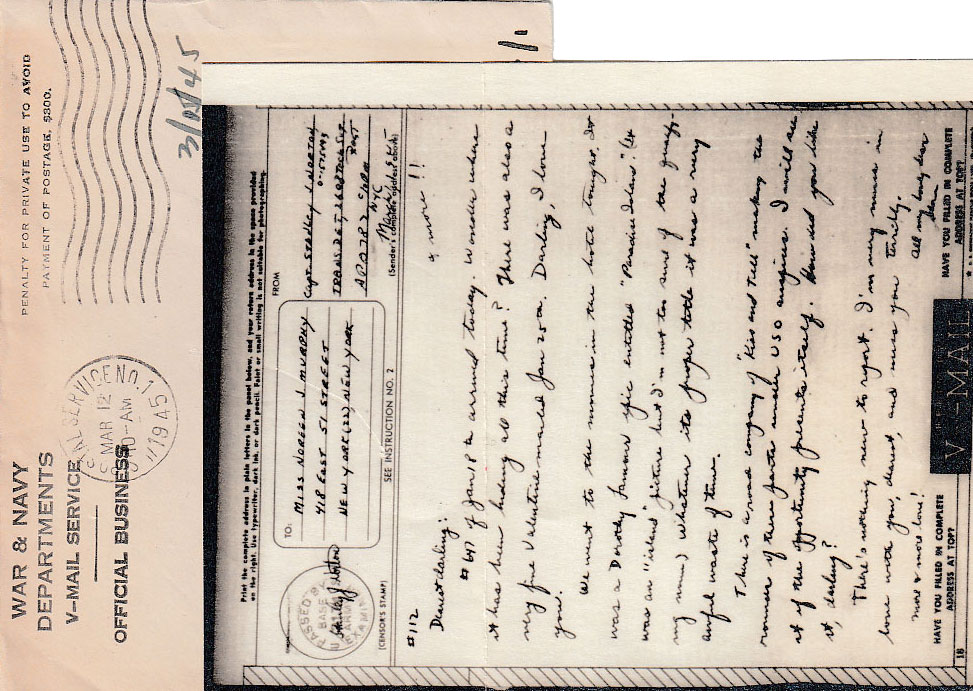 WAR & NAVY
DEPARTMENTS
V-MAIL SERVICE
OFFICIAL BUSINESS
PENALTY FOR PRIVATE USE TO AVOID
PAYMENT OF POSTAGE, $300.
SERVICE NO. 1
MAR 12
-AM
1945
Print the complete address in plain letters in the panel below, and your return address in the space provided
on the right. Use typewriter, dark ink, or dark pencil. Faint or small writing is not suitable for photographing.
TO:
MISS NOREEN J. MURPHY
418 EAST 51 STREET
NEW YORK (22) NEW YORK
FROM
Capt. STANLEY J. NORTON
APO 782 c/o PM
NYC
(Sender's complete address above)
SEE INSTRUCTION NO. 2
PASSED BY
BASE
EXAMINER
(CENSOR'S STAMP)
& more!!
#112
Dearest darling:
#647 of Jan 18th arrived today. Wonder where
it has been hiding all this time? There was also a
very fine Valentine mailed Jan 20th. Darling, I love
you.
We went to the movies in the hotel tonight. It
was a Dorothy Lamour epic entitled
was an "island" picture but I'm not too sure of the
my mind) Whatever its proper title it was a very
awful waste of time.
There is a road company of "Kiss and Tell" making the
rounds of these parts under USO auspices. I will see
it if the opportunity presents itself. How did you like
it, darling?
There's nothing new to report. I'm very much in
love with you, dearest, and miss you terribly.
All my love, dear
more & more love!
Stan
HAVE YOU FILLED IN COMPLETE
ADDRESS AT TOP?
V-MAIL
HAVE YOU FILLED IN COMPLETE
ADDRESS AT TOP?